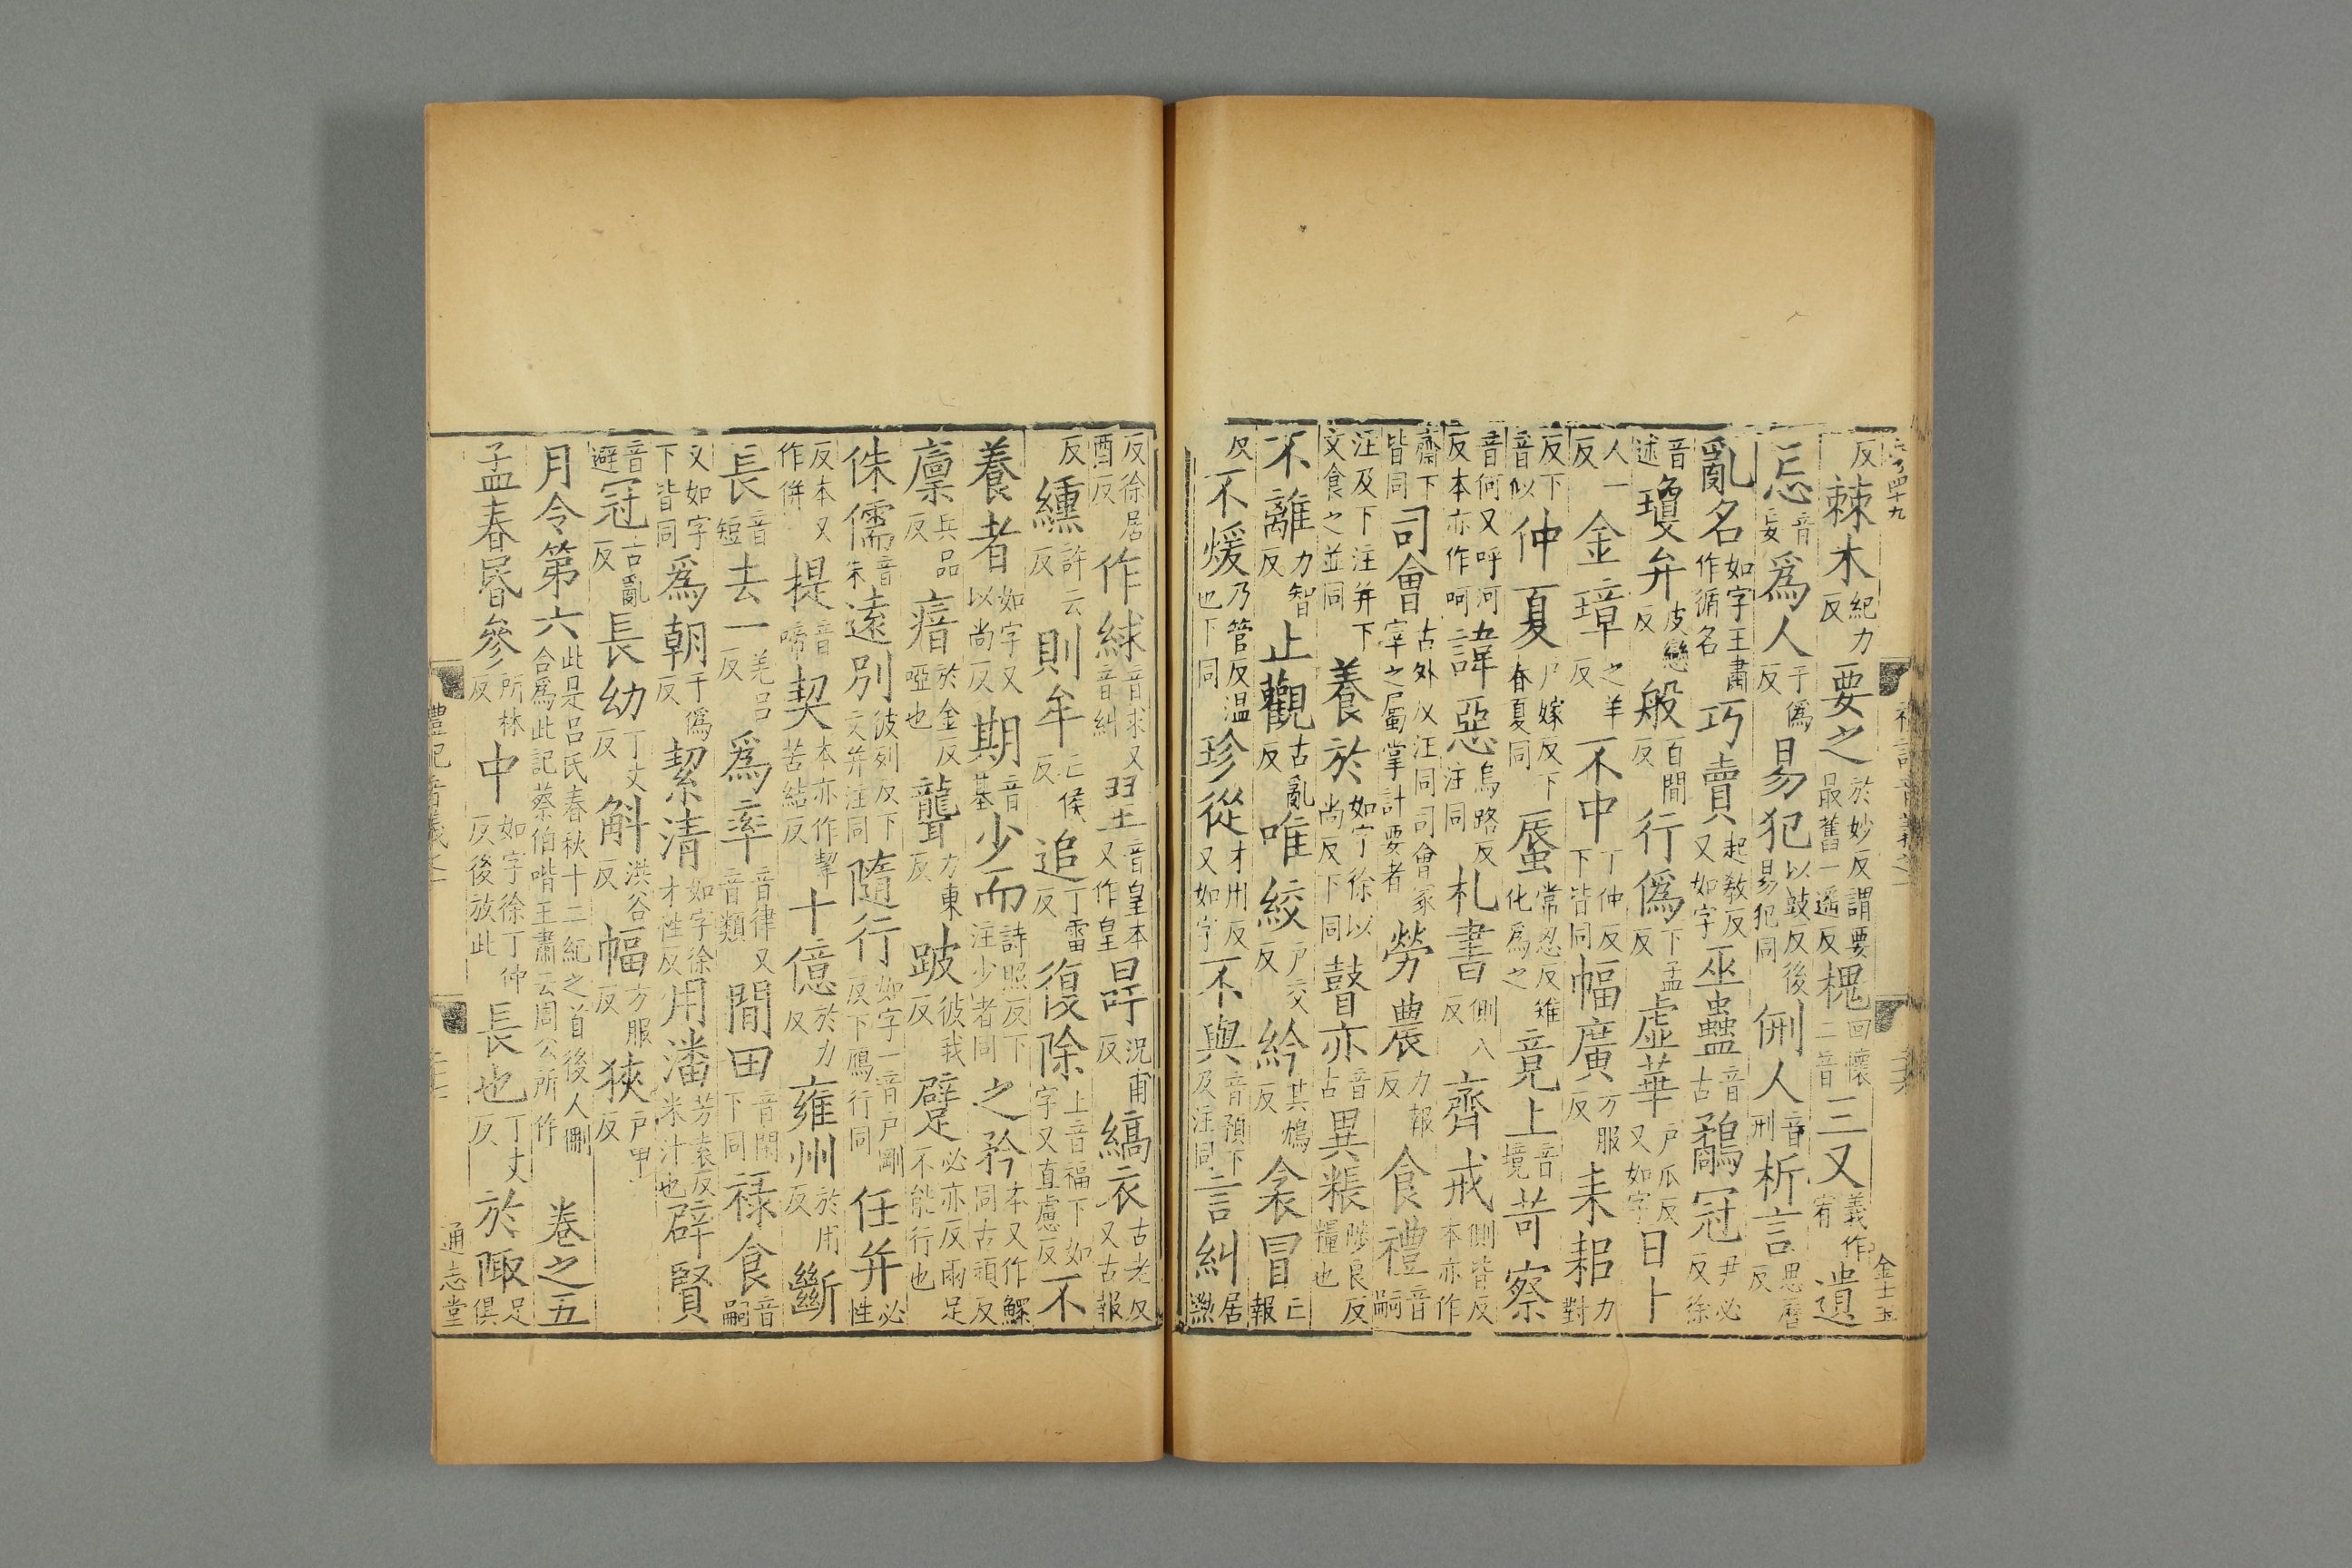 反棘木紀力反要之於妙反謂要最舊一遥反槐回懷二音三又義作宥遺
忘音妄爲人于僞反易犯以豉反後易犯同侀人音刑析言思歷反
亂名如字王肅作循名巧賣起教反又如字巫蠱音古鷸冠尹必反徐
音述瓊弁皮戀反般百間反行僞下孟反虛華戶瓜反又如字日卜
人一反金璋之羊反不中丁仲反下皆同幅廣方服反耒耜力對
反下音似仲夏戶嫁反下春夏同蜃常忍反雉化爲之竟上音境苛察
音何又呼河反本亦作呵諱惡烏路反注同札書側八反齊戒側皆反本亦作
齋下皆同司會古外反注同司會冢宰之屬掌計要者勞農力報反食禮音嗣
注及下注并下文食之並同養於如字徐以尚反下同瞽亦音古異粻陟良反糧也
不離力智反止觀古亂反唯絞戶交反紟其鴆反衾冒亡報
反不煖乃管反温也下同珍從才用反又如字不與音預下及注同言糾居黝
反徐居酉反作絿音求又音糾堲音皇本又作皇冔況甫反縞衣古老反又古報
反纁許云反則牟亡侯反追丁雷反復除上音福下如字又直慮反不
養者如字又以尚反期音基少而詩照反下注少者同之矜本又作鰥同古頑反
廩兵品反瘖於金反啞也聾力東反跛彼我反躄必亦反兩足不能行也
侏儒音朱遠別彼列反下文并注同隨行如字一音戶剛反下鴈行同任并必性
反本又作併提音啼契本亦作挈苦結反十億於力反雍州於用反斷
長音短去一羌呂反爲率音律又音類閒田音閑下同祿食音嗣
又如字下皆同爲朝于僞反絜清如字徐才性反用潘芳袁反米汁也辟賢
音避冠古亂反長幼丁丈反斛洪谷反幅方服反狹戶甲反
月令第六此是呂氏春秋十二紀之首後人刪合爲此記蔡伯喈王肅云周公所作卷之五
孟春昬參所林反中如字徐丁仲反後放此長也丁丈反於陬足俱
禮記音義之一
通志堂